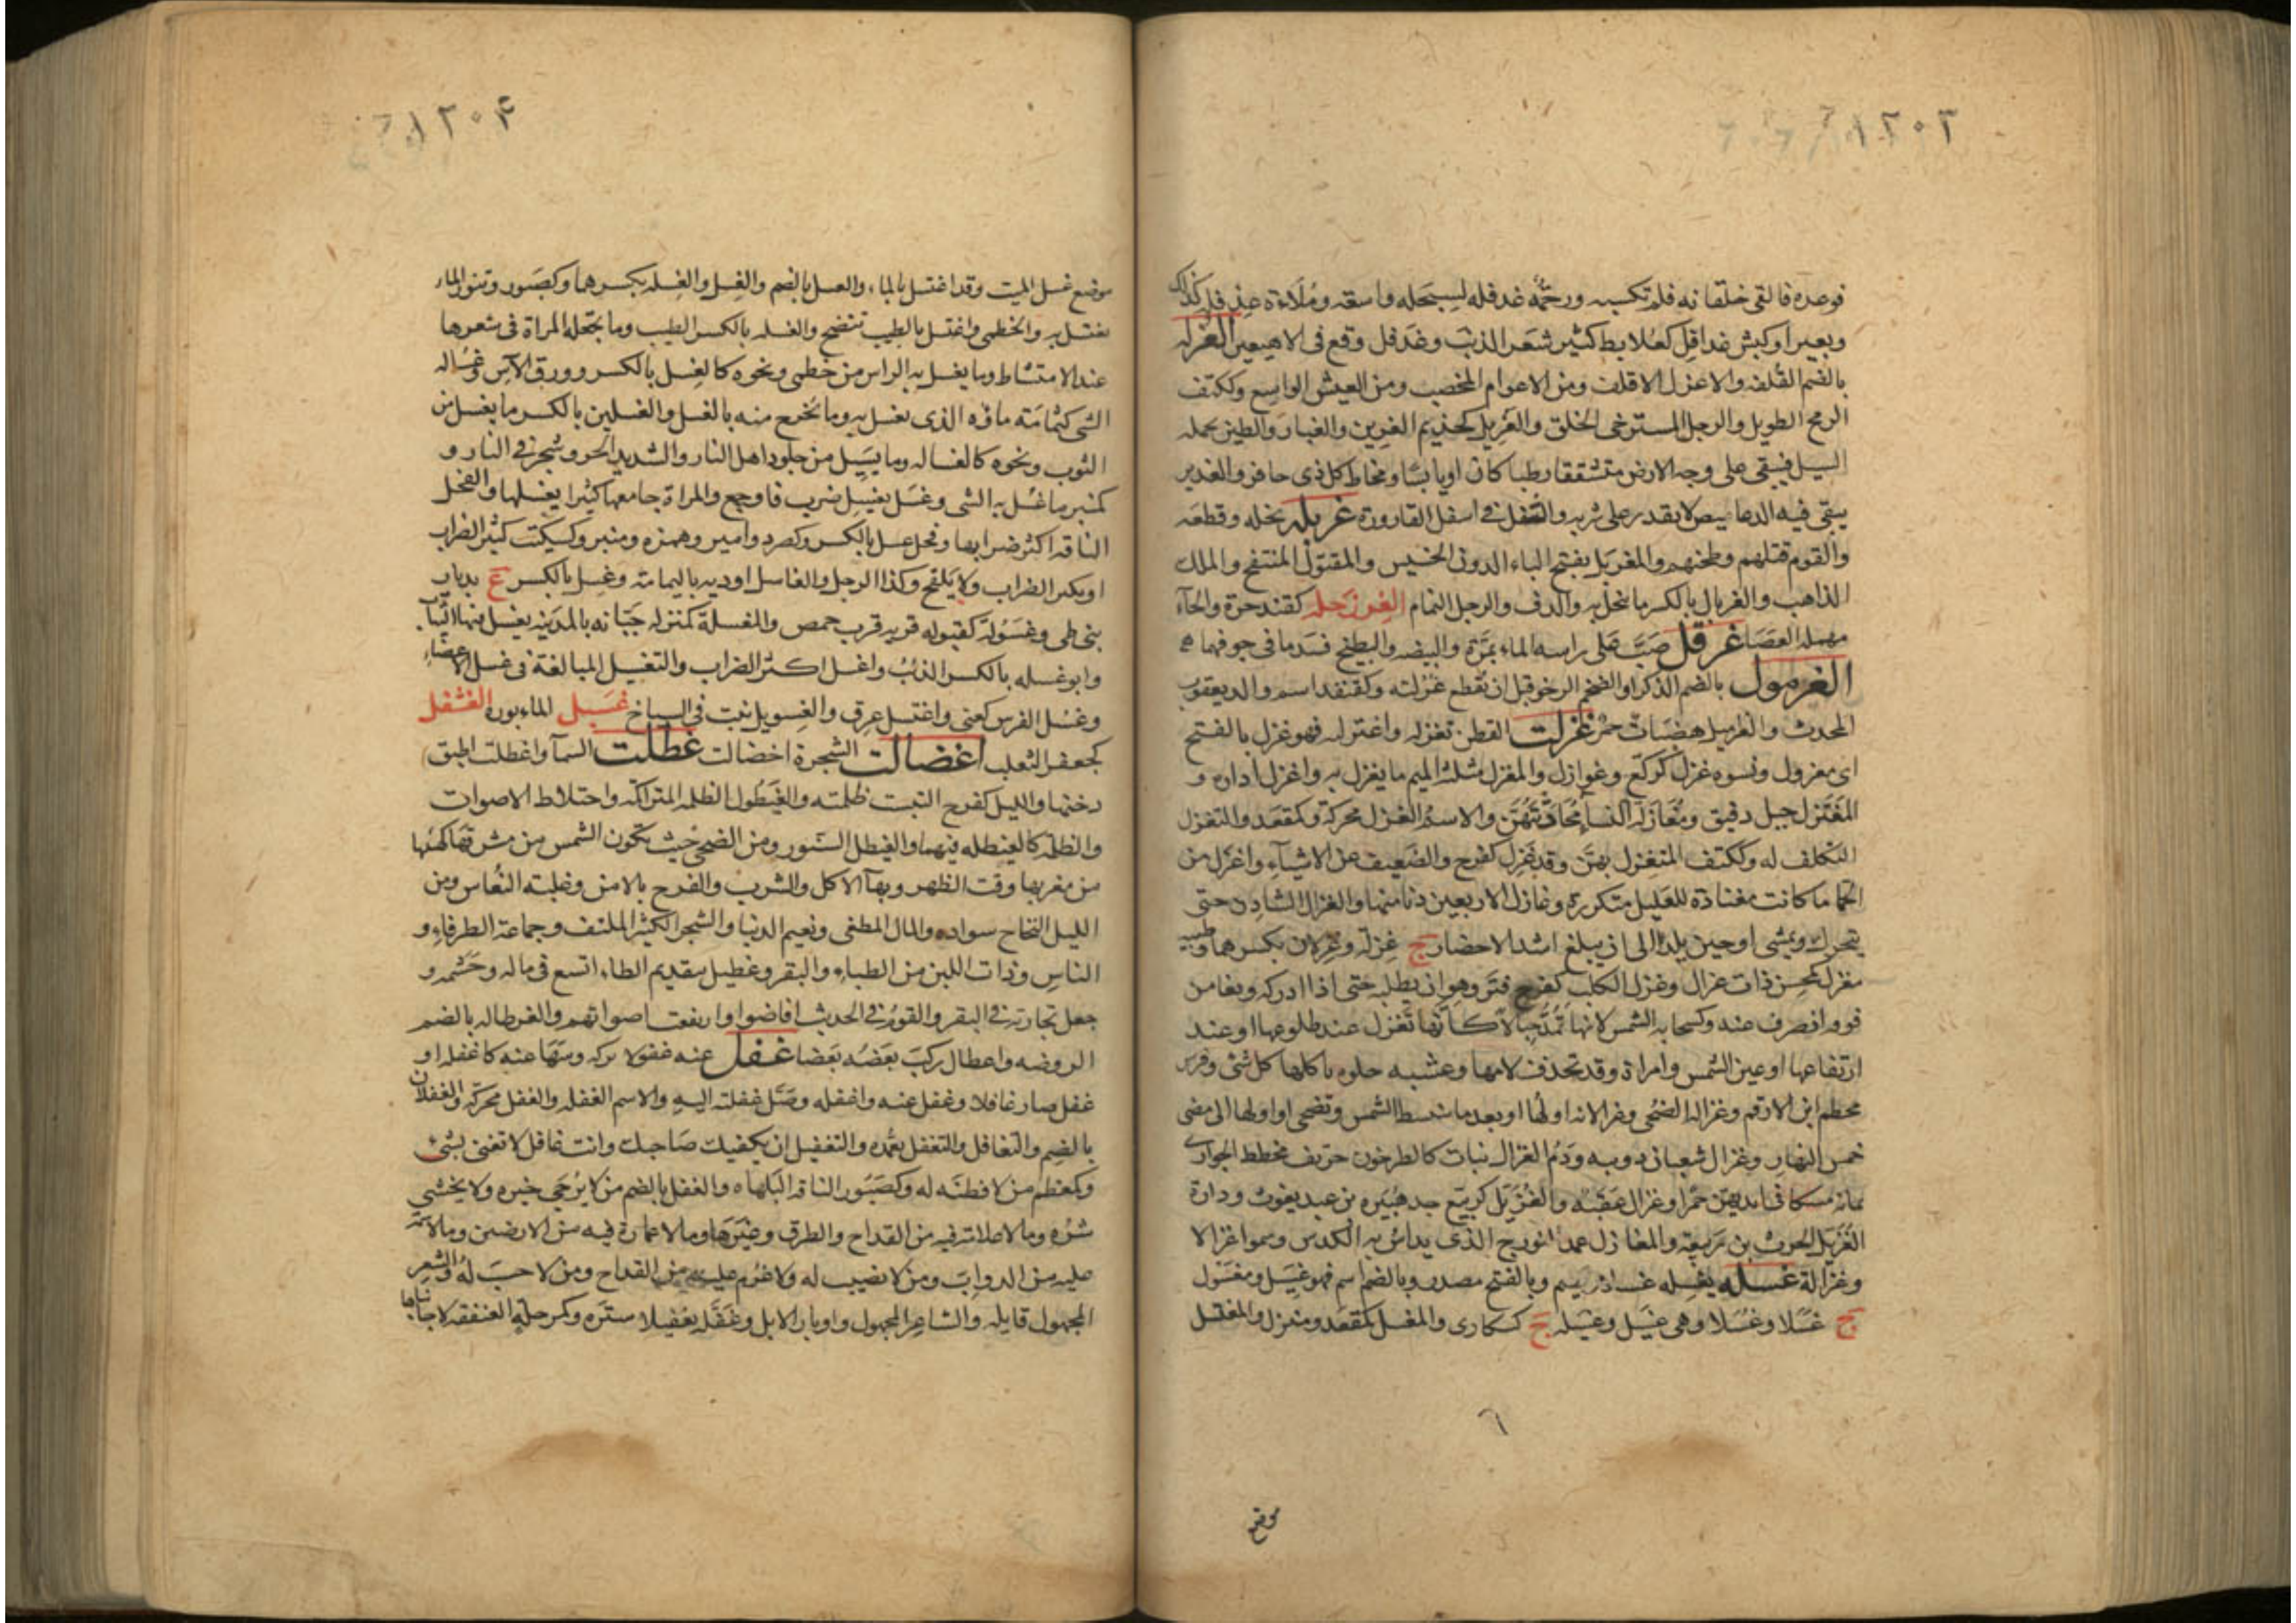 ١٢٠٣
فوعده فالقى خلقانه فلم تكسبه ورحمه غدفله لسبحله واسعة وملاءة غدفل كذلك
وبعير او كبش غدافل كعلابط كثير شعر الذنب وغدفل وقع في الاهيغين الغرلة
بالضم القلفة والاغرل الاقلف ومن الاعوام المخصب ومن العيش الواسع وككتف
الرمح الطويل والرجل المسترخى الخلق والغريل كحذيم الغرين والغبار والطين يحمله
السيل فيبقى على وجه الارض متشققا رطبا كان او يابسا ومخاط كل ذى حافر والغدير
يبقى فيه الدعاميص لا يقدر على شربه والثفل في اسفل القارورة غربله نخله وقطعه
والقوم قتلهم وطحنهم والمغربل بفتح الباء الدون الخسيس والمقتول المنتفخ والملك
الذاهب والغربال بالكسر ما نخل به والدف والرجل النمام الغرزحله كقندحرة والحاء
مهملة العصا غرقل صب على راسه الماء بمرة والبيضة والبطيخ فسد ما في جوفهما
الغرمول بالضم الذكر او الضخم الرخو قبل ان تقطع غرلته وكقنفذ اسم والد يعقوب
المحدث والغراميل هضبات حمر غزلت القطن تغزله واغتزلته فهو غزل بالفتح
اى مغزول ونسوة غزل كركع وغوازل والمغزل مثلثه الميم ما يغزل به واغزل اداره و
المغتزل حبل دقيق ومغازلة النساء محادثتهن والاسم الغزل محركة وكمقعد والتغزل
التكلف له وككتف المتغزل بهن وقد غزل كفرح والضعيف عن الاشياء واغزل من
الحما ما كانت معتادة للعليل متكررة وغازل الاربعين دنا منها والغزال الشادن حتى
يتحرك ويمشى او حين يلد الى ان يبلغ اشد الاحضار ج غزلة وغزلان بكسرهما وظبيه
مغزل كمحسن ذات غزال وغزل الكلب كفرح فتر وهو ان يطلبه حتى اذا ادركه وثغا من
فرقه انصرف عنه وكسحابه الشمس لانها تمد حبالا كانها تغزل عند طلوعها او عند
ارتفاعها او عين الشمس وامراة وقد تحذف لامها وعشبه حلوه ياكلها كل شى وفرس
محطم ابن الارقم وغزالة الضحى وغزالاته اولها او بعد ما تنبسط الشمس وتضحى او اولها الى مضى
خمس النهار وغزال شعبان دويبه ودم الغزال نبات كالطرخون حريف مخطط الجوارى
بمائه مسكا في ايديهن حمرا وغزال عقبه والغزيل كربيع جد هبيره بن عبد يغوث ودارة
الغزيل لحرث بن ربيعة والمغازل عمد النورج الذى يداس به الكدس وسموا غزالا
وغزالة غسله يغسله غسلا ويضم وبالفتح مصدر وبالضم اسم فهو غسيل ومغسول
ج غسلا وغسلا وهى غسيل وغسيله ج كسكارى والمغسل كمقعد ومنزل والمغتسل
موضع
١٢٠۴
موضع غسل الميت وقد اغتسل بالماء والغسل بالضم والغسل والغسلة بكسرهما وكصبور وتنور الماء
يغتسل به والخطمى واغتسل بالطيب تنضخ والغسلة بالكسر الطيب وما تجعله المراة في شعرها
عند الامتشاط وما يغسل به الراس من خطمى ونحوه كالغسل بالكسر وورق الآس وغسالة
الشى كثمامته ماؤه الذى يغسل به وما يخرج منه بالغسل والغسلين بالكسر ما يغسل من
الثوب ونحوه كالغساله وما يسيل من جلود اهل النار والشديد الحر وشجر في النار و
كمنبر ما غسل به الشى وغسل يغسل ضرب فاوجع والمراة جامعها كثيرا يغسلها والفحل
الناقة اكثر ضرابها وفحل غسل بالكسر وكصرد وامير وهمزه ومنبر وسكيت كثير الضراب
او يكثر الضراب ولا يلقح وكذا الرجل والغاسل اوديه باليمامة وغسل بالكسر ع بديار
بنى طى وغسولة كقبوله قريه قرب حمص والمغسلة كمنزله جبانه بالمدينه يغسل فيها الثياب
وابو غسله بالكسر الذئب واغسل اكثر الضراب والتغسيل المبالغة في غسل الاعضاء
وغسل الفرس كعنى واغتسل عرق والغسويل نبت في السباخ غسبل الماء ثوره الغشفل
كجعفر الثعلب اغضالت الشجرة اخضالت غطلت السما واغطلت اطبق
دخنها والليل كفرح التبت ظلمته والغيطول الظلمة المتراكمة واختلاط الاصوات
والظلمة كالغيطله فيهما والغيطل السنور ومن الضحى حيث تكون الشمس من مشرقها كهيئتها
من مغربها وقت الظهر وبهاء الاكل والشرب والفرح بالامن وغلبة النعاس ومن
الليل التجاج سواده والمال المطغى ونعيم الدنيا والشجر الكثير الملتف وجماعة الطرفاء و
الناس وذات اللبن من الظباء والبقر وغطيل بتقديم الطاء اتسع في ماله وحشمه و
جعل تجارته في البقر والقوم في الحديث افاضوا وارتفعت اصواتهم والغرطاله بالضم
الروضه واغطال ركب بعضه بعضا غفل عنه غفولا تركه وسها عنه كاغفله او
غفل صار غافلا وغفل عنه واغفله وصل غفلته اليه والاسم الغفلة والغفل محركة والغفلان
بالضم والتغافل والتغفل تعمده والتغفيل ان يكفيك صاحبك وانت غافل لا تعنى بشى
وكمعظم من لا فطنه له وكصبور الناقة البلهاء والغفل بالضم من لا يرجى خيره ولا يخشى
شره وما لا علامة فيه من القداح والطرق وغيرها وما لا عمارة فيه من الارضين وما لا سمة
عليه من الدواب ومن لا نصيب له ولا غرم عليه من القداح ومن لا حسب له والشعر
المجهول قايله والشاعر المجهول واوبار الابل وغفله تغفيلا ستره وكمرحلة العنفقه لا جانباها